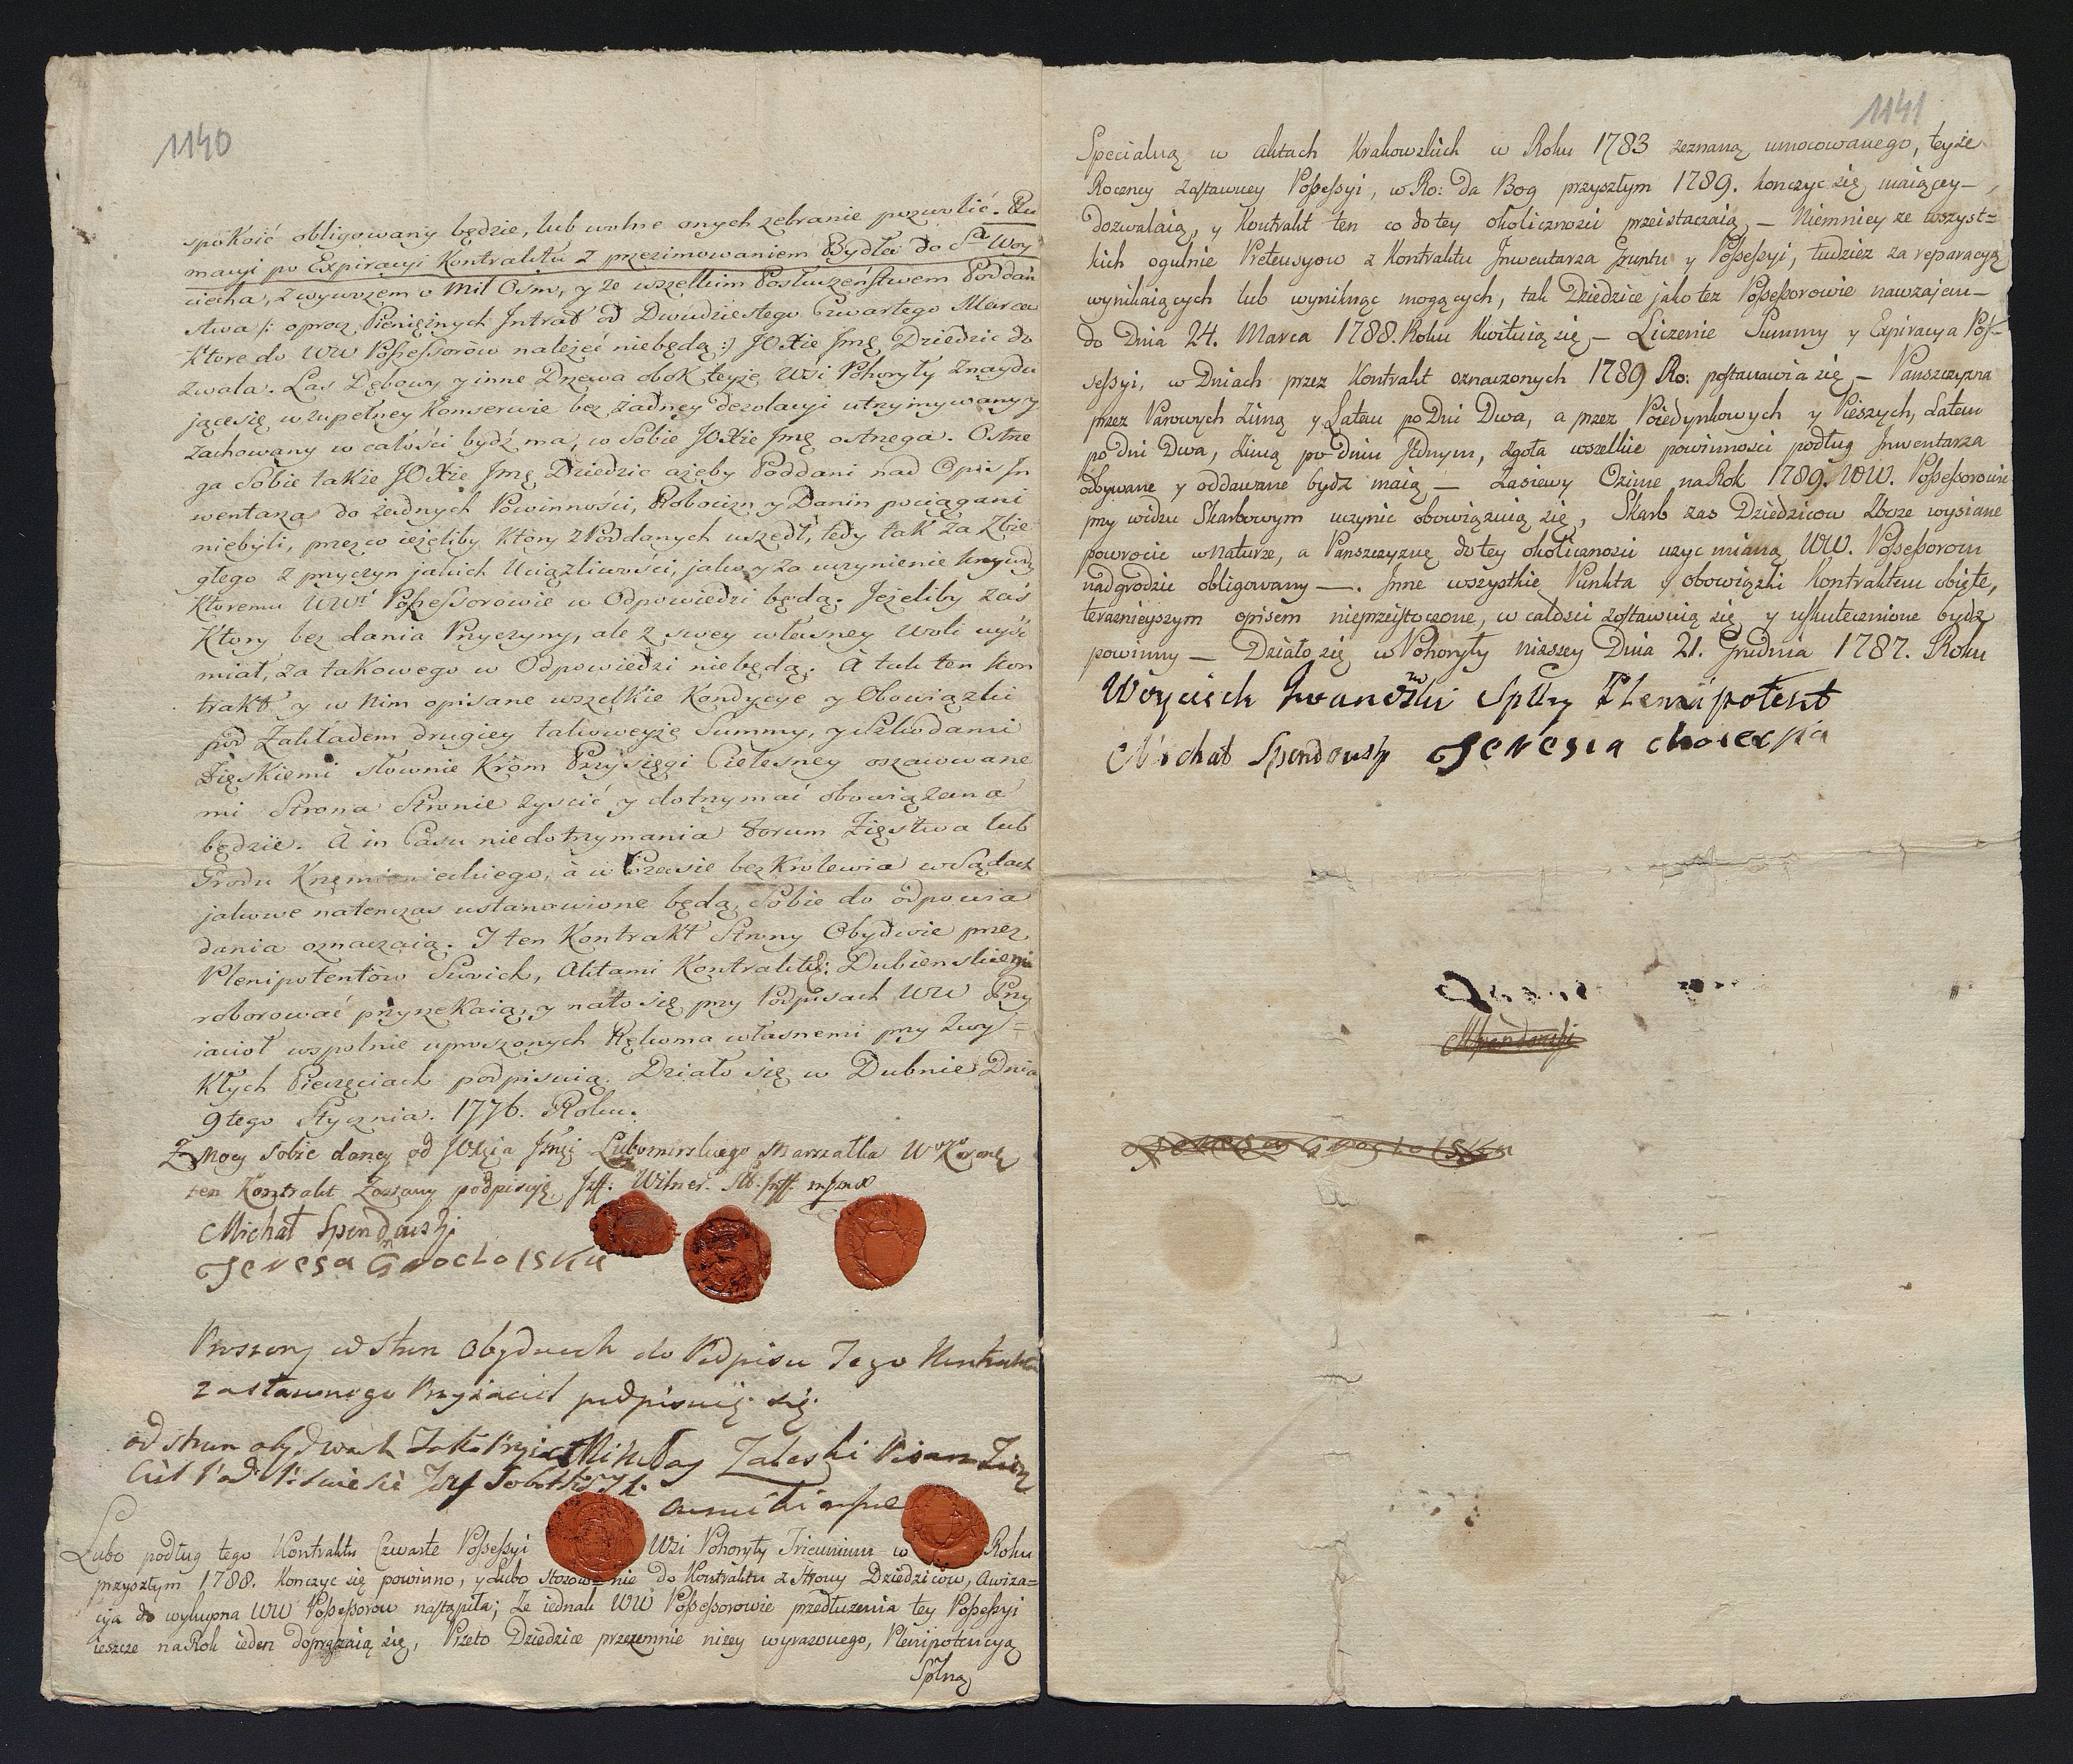 1140
spokoić obligowany będzie, lub wolne onych zebranie pozwolić. Ru
macyi po Expiracyi Kontraktu z przezimowaniem Bydła do Sº Woy
ciecha, z wywozem o Mil Ośm, y ze wszelkim Posłuszeństwem Poddań
stwa /: oprocz Pieniężnych Intrat od Dwudziestego Czwartego Marca
ktore do WW Possessorow należeć niebędą :/ JOXże Jmę Dziedzic do
zwala. Las Dębowy y inne Drzewa obok teyże Wsi Pohoryły znaydu
jące się w zupełney Konserwie bez żadney dezolacyi utrzymywany y
zachowany w całości bydź ma, w Sobie JOXże Jmę ostrzega. Ostrze
ga Sobie także JOXże Jmę Dziedzic ażeby Poddani nad Opis In
wentarza do żadnych Powinności, Robocizn y Danin pociągani
niebyli, przez co ieżeliby który z Poddanych uszedł, tedy tak za Zbie
głego z przyczyn jakich Uciążliwości, jako y za uczynienie krzywdy
Ktoremu WWi Possessorowie w Odpowiedzi będą. Jeżeliby zaś
Ktory bez dania Przyczyny, ale z swey własney Woli wyiść
miał, za takowego w Odpowiedzi niebędą. A tak ten Kon
trakt y w Nim opisane wszelkie Kondycye y Obowiązki
pod Zakładem drugiey takoweyże Summy, y Szkodami
Ziemskiemi słownie Krom Przysięgi Cielesney oszacowane
mi Strona Stronie zyścić y dotrzymać obowiązana
będzie. A in Casu niedotrzymania Forum Ziemstwa lub
Grodu Krzemienieckiego, à w Czasie bezKrolewia w Sądach
jakowe natenczas ustanowione będą, Sobie do odpowia
dania oznaczaią. I ten Kontrakt Strony Obydwie przez
Plenipotentów Swoich, Aktami Kontraktu: Dubienskiemi
roborować przyrzekaią, y na to się przy Podpisach WW Przy
iacioł wspolnie uproszonych Rękoma własnemi przy Zwy=
kłych Pieczęciach podpisuią. Działo się w Dubnie Dnia
9tego Stycznia. 1776. Roku.
Z Mocy sobie daney od JOXcia Jmci Lubomirskiego Marszałka
ten Kontrakt Zastawny podpisuję
Michał Spendowski
Teresa Grocholska
Proszony od Stron Obydwuch do Podpisu Tego Kontraktu
zastawnego Przyiaciel podpisuię się.
od stron obydwuch Jako Przyia Mikołay Zaleski Pisarz Ziem
ciel
Lubo podług tego Kontraktu Czwarte Possessyi Wsi Pohoryły Triennium w Roku
przyszłym 1788. Konczyc się powinno, y Lubo stosownie do Kontraktu z Strony Dziedzicow, Awiza=
cya do wykupna WW Possessorow nastąpiła; Ze iednak WW Possessorowie przedłużenia tey Possessyi
ieszcze na Rok ieden dopraszaią się, Przeto Dziedzice przezemnie niżey wyrażonego, Plenipotencyą
Splną
1141
Specialną w Aktach Krakowskich w Roku 1783 zeznaną umocowanego, teyże
Roczney zastawney Possessyi, w Ro: da Bog przyszłym 1789. konczyc się maiącey —
dozwalaią, y Kontrakt ten co do tey okoliczności przeistaczaią, — Niemniey ze wszyst=
kich ogulnie Pretensyow z Kontraktu Inwentarza Gruntu y Possessyi, tudzież za reparacyą
wynikaiących lub wyniknąc mogących, tak Dziedzice jako też Possessorowie nawzajem —
do Dnia 24. Marca 1788. Roku kwituią się — Liczenie Summy y Expiracya Pos=
sessyi, w Dniach przez Kontrakt oznaczonych 1789 Ro: postanawia się — Panszczyzna
przez Parowych Zimą y Latem po Dni Dwa, a przez Poiedynkowych y Pieszych, Latem
po Dni Dwa, Zimą po Dniu Jednym, zgoła wszelkie powinności podług Inwentarza
odbywane y oddawane bydź maią — Zasiewy Ozime na Rok 1789. WW. Possessorowie
przy widzu Skarbowym uczynic obowiązuią się, Skarb zas Dziedzicow Zboże wysiane
powrocic w Naturze, a Panszczyznę do tey okoliczności użyc mianą WW. Possessorom
nadgrodzic obligowany —. Inne wszystkie Punkta y obowiązki Kontraktem obięte,
terazniejszym opisem nieprzeistoczone, w całości zostawuią się y uskutecznione bydz
powinny — Działo się w Pohoryły niższey Dnia 21. Grudnia 1787. Roku
Woyciech Iwanowski Splny Plenipotent
Michał Spendowski Teresa
MSpendowski
Teresa Grocholska